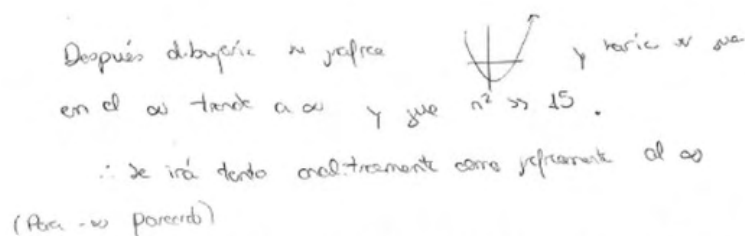 Después dibujaría su gráfica y vería su que
en el ∞ tiende a ∞ y que n² >> 15.
∴ Se irá tanto analíticamente como gráficamente al ∞
(Para -∞ parecido)